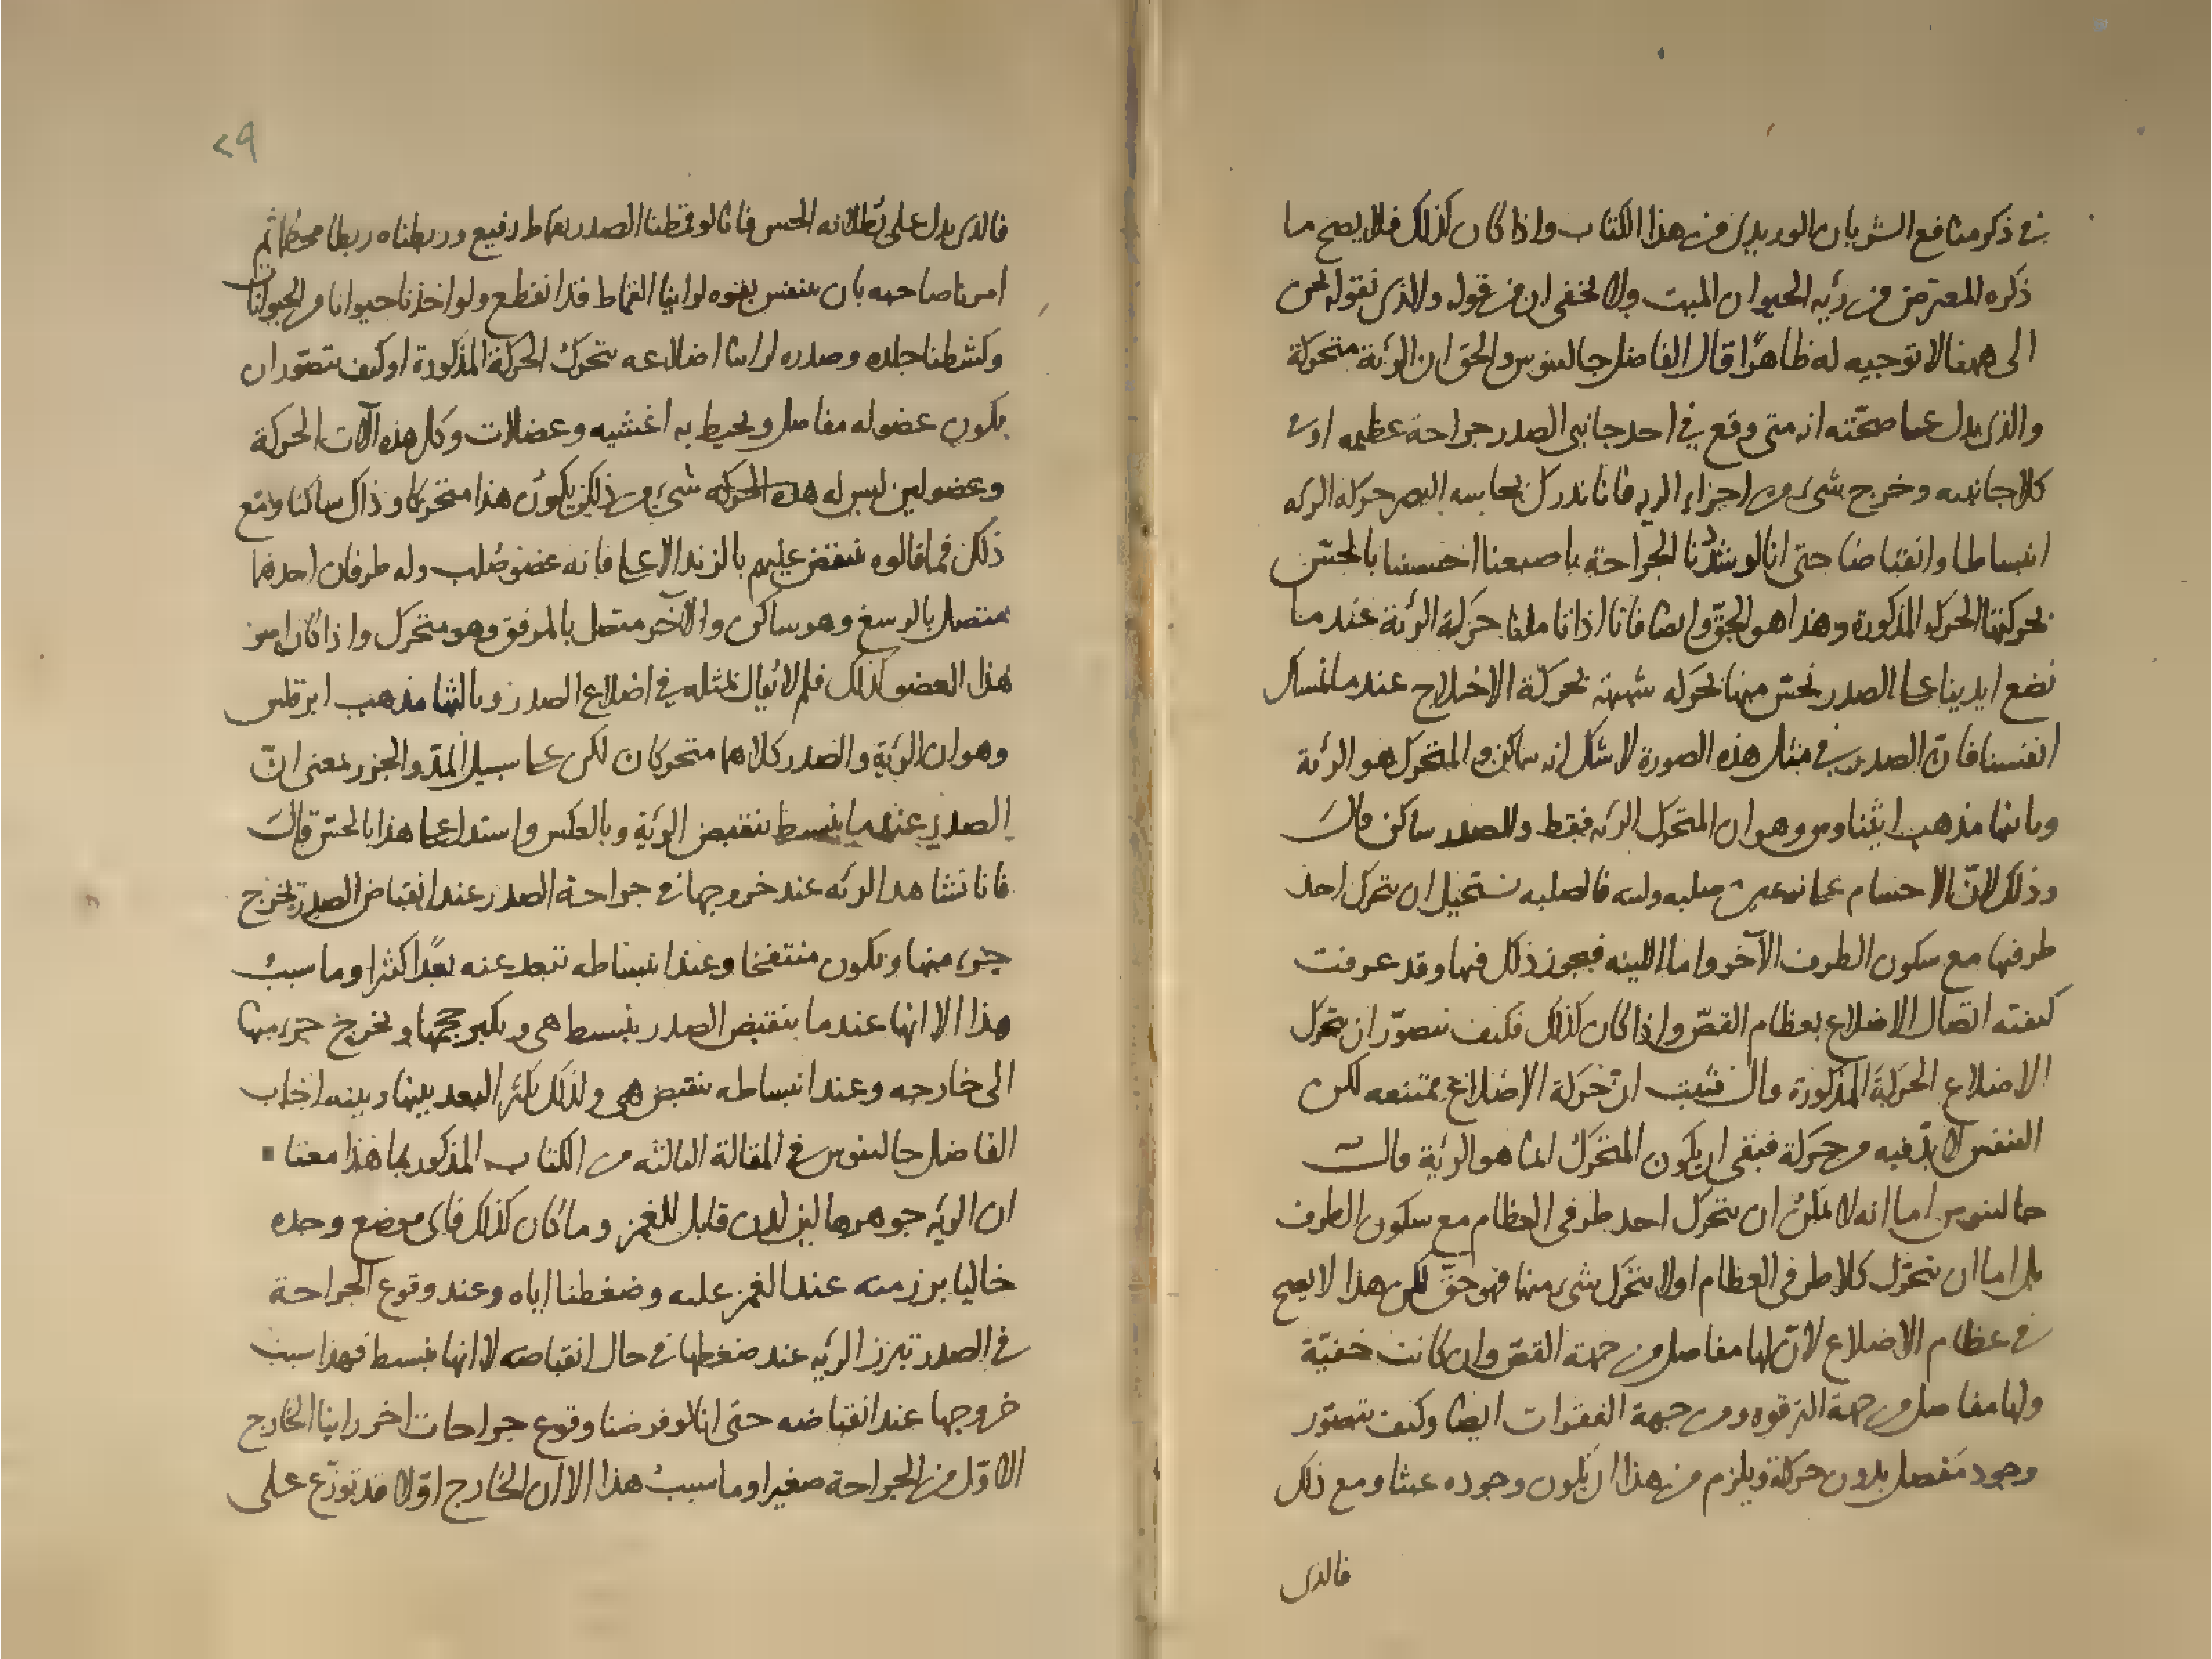 في ذكر منافع الشريان الوريدي من هذا الكتاب واذا كان كذلك فلا يصح ما
ذكره المعترض من رئة الحيوان الميت ولا يخفى ان من قوله والذي نقوله نحن
الى ههنا لا توجيه له ظاهرا قال الفاضل جالينوس والحق ان الرئة متحركة
والذي يدل على صحته انه متى وقع في احد جانبي الصدر جراحة عظيمة او في
كلا جانبيه وخرج شيء من اجزاء الرية فانا ندرك بحاسه البصر حركة الرئه
انبساطا وانقباضا حتى انا لو شددنا الجراحة باصبعنا احسسنا بالحس
بحركتها الحركة المذكورة وهذا هو الحق وايضا فانا اذا تاملنا حركة الرئة عندما
نضع ايدينا على الصدر نحس منها بحركه شبيهة بحركة الاختلاج عندما نمسك
انفسنا فان الصدر في مثل هذه الصورة لا شك انه ساكن والمتحرك هو الرئة
وثانيها مذهب وهو ان المتحرك الرئه فقط والصدر ساكن قال
وذلك لان الاجسام على نوعين صلبه ولينه فالصلبه يستحيل ان يتحرك احد
طرفيها مع سكون الطرف الآخر واما اللينه فيجوز ذلك فيها وقد عرفت
كيفية اتصال الاضلاع بعظام القص واذا كان كذلك فكيف يتصور ان يتحرك
الاضلاع الحركة المذكورة قال فثبت ان حركة الاضلاع ممتنعه لكن
التنفس لا بد فيه من حركة فبقي ان يكون المتحرك انما هو الرية قال
جالينوس اما انه لا يمكن ان يتحرك احد طرفي العظام مع سكون الطرف
بل اما ان يتحرك كلا طرفي العظام او لا يتحرك شيء منها فهو حق لكن هذا لا يصح
في عظام الاضلاع لان لها مفاصل من جهة القص وان كانت خفية
ولها مفاصل من جهة الترقوه ومن جهة الفقرات ايضا وكيف يتصور
وجود مفصل بدون حركة ويلزم من هذا ان يكون وجوده عبثا ومع ذلك
فالذي
٢٩
فالذي يدل على بطلانه الحس فانا لو قمطنا الصدر بقماط رفيع وربطناه ربطا محكما ثم
امرنا صاحبه بان يتنفس بقوه لراينا القماط قد انقطع ولو اخذنا حيوانا من الحيوانات
وكشطنا جلده وصدره لراينا اضلاعه تتحرك الحركة المذكورة او كيف يتصور ان
يكون عضو له مفاصل ويحيط به اغشيه وعضلات وكل هذه آلات الحركة
وعضو لين ليس له هذه الحركه شيء من ذلك يكون هذا متحركا وذاك ساكنا ومع
ذلك فما قالوه ينتقض عليهم بالزند الاعلى فانه عضو صلب وله طرفان احدهما
متصل بالرسغ وهو ساكن والآخر متصل بالمرفق وهو متحرك واذا كان امر
هذا العضو كذلك فلم لا يقال بمثله في اضلاع الصدر وثالثها مذهب ابرقلس
وهو ان الرية والصدر كلاهما متحركان لكن على سبيل المد والجزر بمعنى ان
الصدر عندما ينبسط تنقبض الرئة وبالعكس واستدل على هذا بالحس قال
فانا نشاهد الرئه عند خروجها في جراحة الصدر عند انقباض الصدر يخرج
جزء منها ويكون منتفخا وعند انبساطه تبعد عنه بعدا كثيرا وما سبب
هذا الا انها عندما ينقبض الصدر ينبسط هي ويكبر حجمها ويخرج جزء منها
الى خارجه وعند انبساطه تنقبض هي ولذلك يكثر البعد بينها وبينه اجاب
الفاضل جالينوس في المقالة الثالثه من الكتاب المذكور بما هذا معناه
ان الرئة جوهرها لين لدن قابل للغمز وما كان كذلك فاي موضع وجده
خاليا برز منه عند الغمز عليه وضغطنا اياه وعند وقوع الجراحة
في الصدر تبرز الريه عند ضغطها في حال انقباضه لا انها تنبسط فهذا سبب
خروجها عند انقباضه حتى انا لو فرضنا وقوع جراحات اخر راينا الخارج
الاول من الجراحة صغيرا وما سبب هذا الا ان الخارج اولا قد توزع على